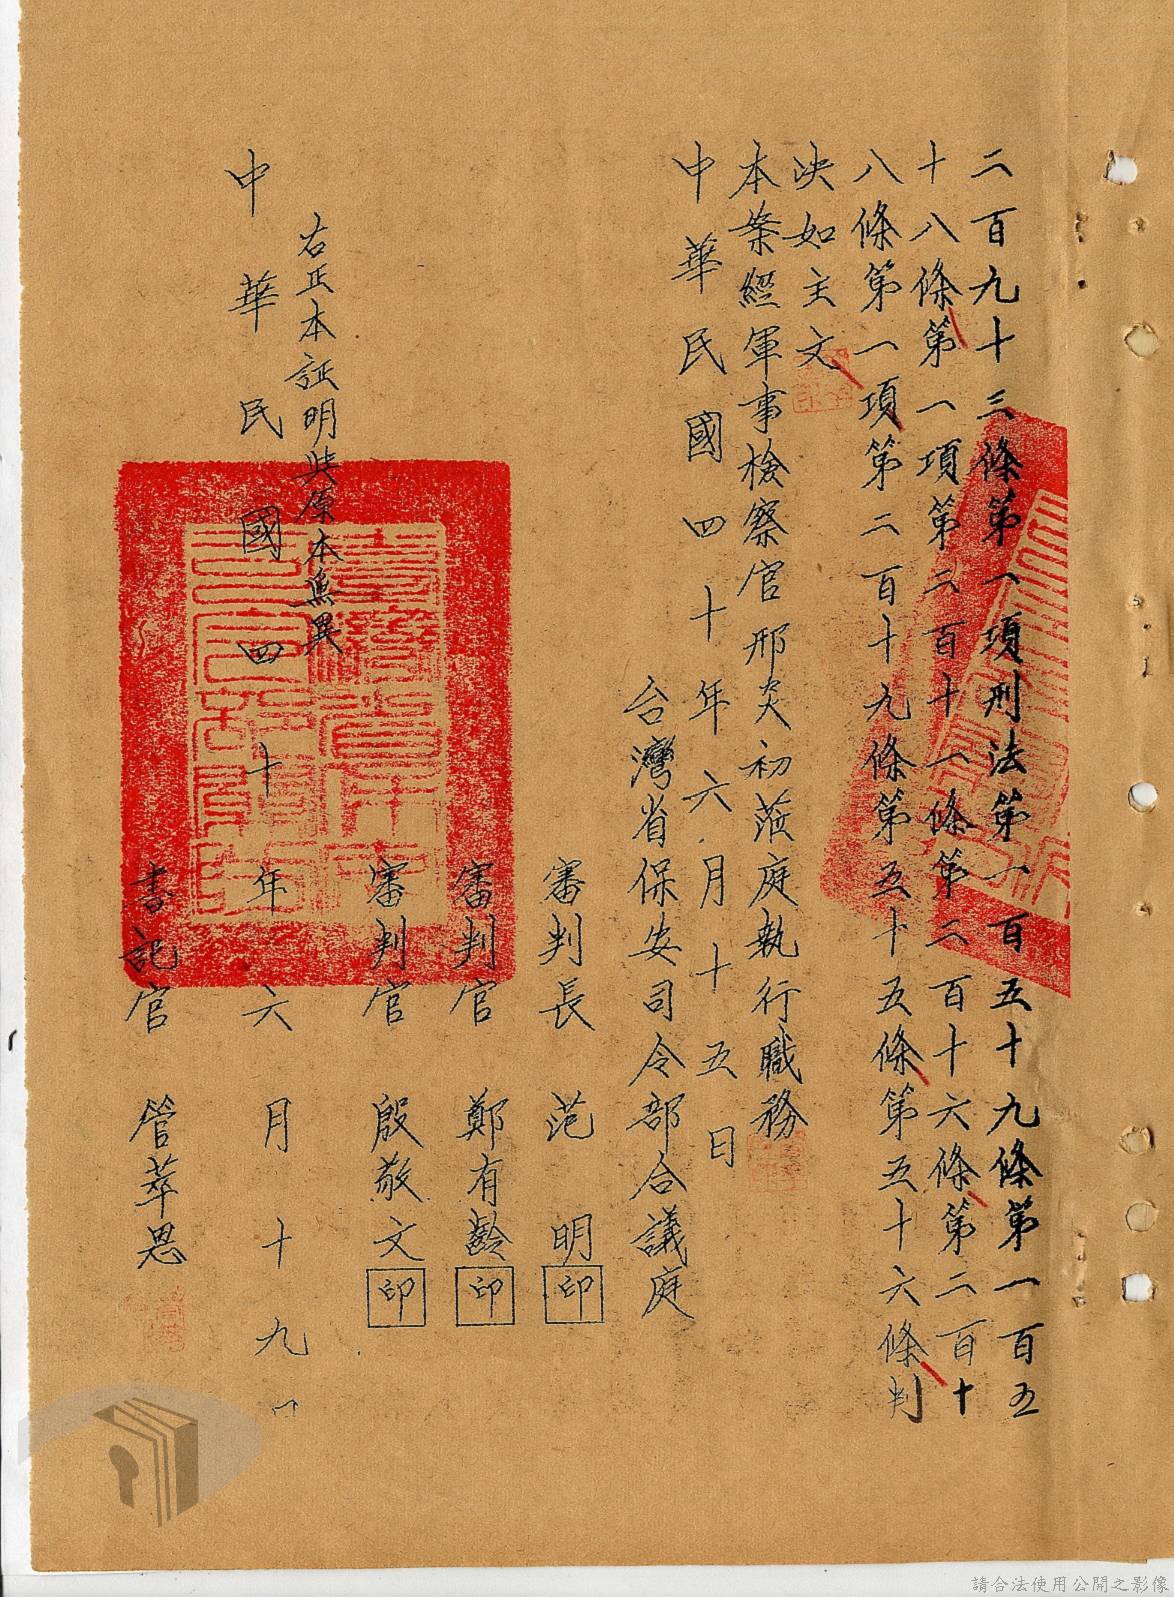 二百九十三條第一項刑法第一百五十九條第一百五
十八條第一項第二百十一條第二百十六條第二百十
八條第一項第二百十九條第五十五條第五十六條判
決如主文
本案經軍事檢察官邢炎初蒞庭執行職務
中華民國四十年六月十五日
台灣省保安司令部合議庭
審判長 范明 印
審判官 鄭有齡 印
審判官 殷敬文 印
右正本証明與原本無異
中華民國四十年六月十九日
書記官 管萃恩
請合法使用公開之影像